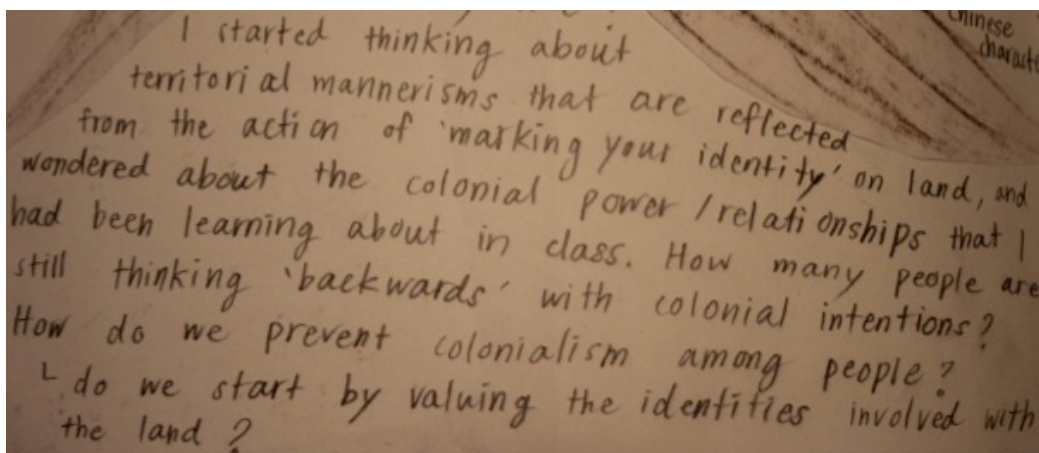 chinese
I started thinking about
territorial mannerisms that are reflected
from the action of 'marking your identity' on land, and
wondered about the colonial power / relationships that I
had been learning about in class. How many people are
still thinking 'backwards' with colonial intentions?
How do we prevent colonialism among people?
└ do we start by valuing the identities involved with
the land?